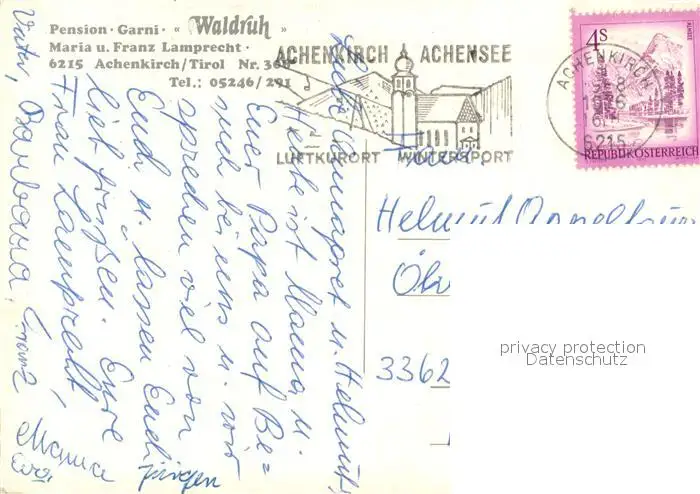 Pension · Garni · « Waldruh »
Maria u. Franz Lamprecht ·
6215 Achenkirch/Tirol Nr. 368
Tel.: 05246/291
ACHENKIRCH ACHENSEE
LUFTKURORT WINTERSPORT
ACHENKIRCH
6215
4s
ALMSEE
REPUBLIK ÖSTERREICH
Liebe Annegret u. Helmut,
Heute ist Mama u.
Euer Papa auf Be=
such bei uns u. wir
sprechen viel von
Euch u. lassen Euch
lieb grüßen. Eure
Frau Lamprecht,
Vater, Barbara, Franz
Mama
jürgen
Helmut
3362
privacy protection
Datenschutz